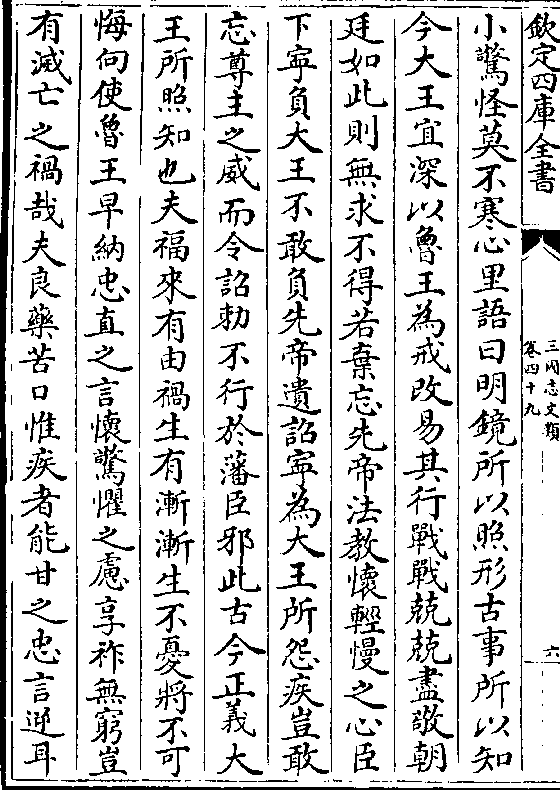 欽定四庫全書
三國志文類
卷四十九
六
小驚怪莫不寒心里語曰明鏡所以照形古事所以知
今大王宜深以魯王為戒改易其行戰戰兢兢盡敬朝
廷如此則無求不得若棄忘先帝法教懷輕慢之心臣
下寧負大王不敢負先帝遺詔寧為大王所怨疾豈敢
忘尊主之威而令詔勅不行於藩臣邪此古今正義大
王所照知也夫福來有由禍生有漸漸生不憂將不可
悔向使魯王早納忠直之言懷驚懼之慮享祚無窮豈
有滅亡之禍哉夫良藥苦口惟疾者能甘之忠言逆耳